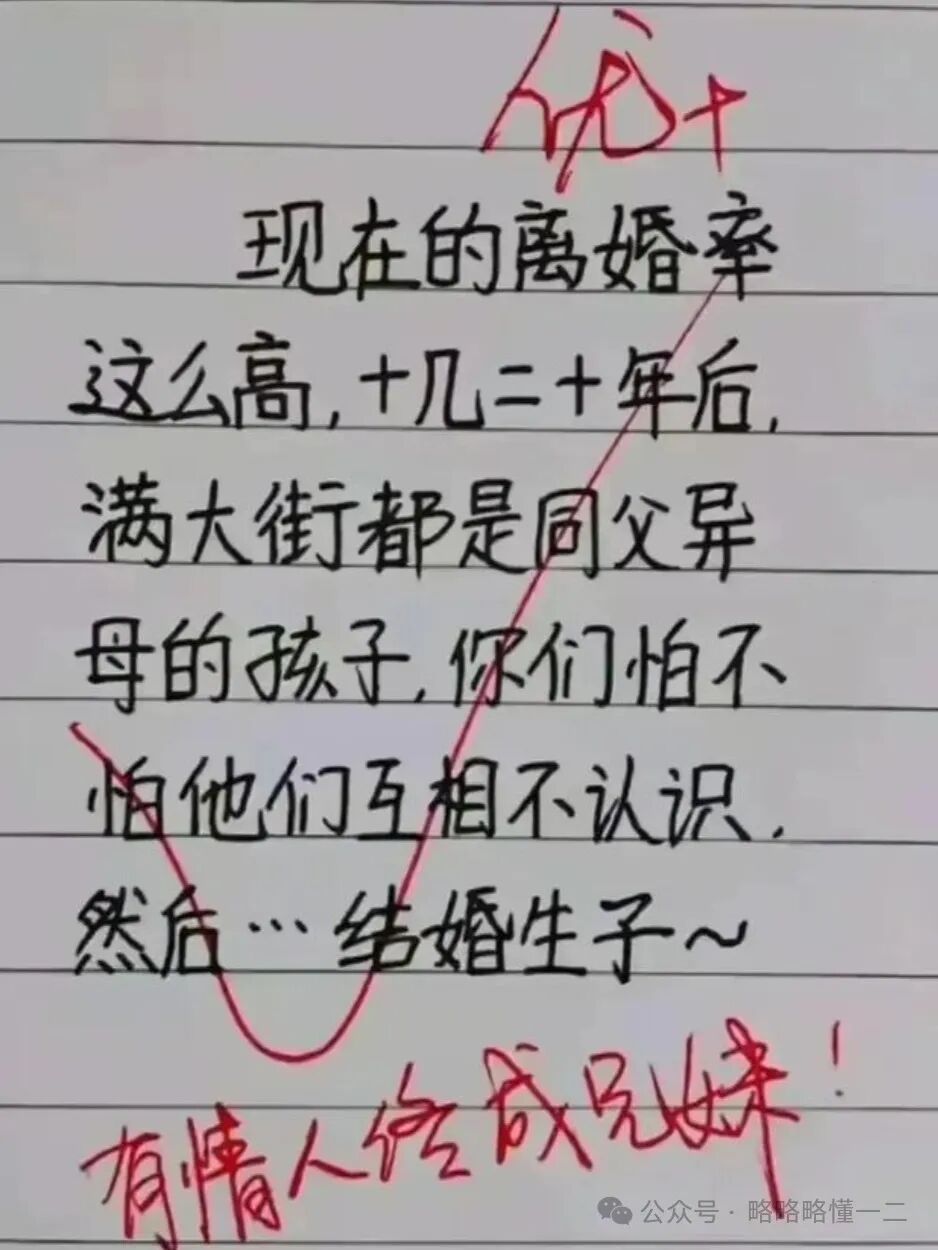 优+
现在的离婚率
这么高,十几二十年后,
满大街都是同父异
母的孩子,你们怕不
怕他们互相不认识,
然后…结婚生子~
有情人终成兄妹!
公众号·略略略懂一二